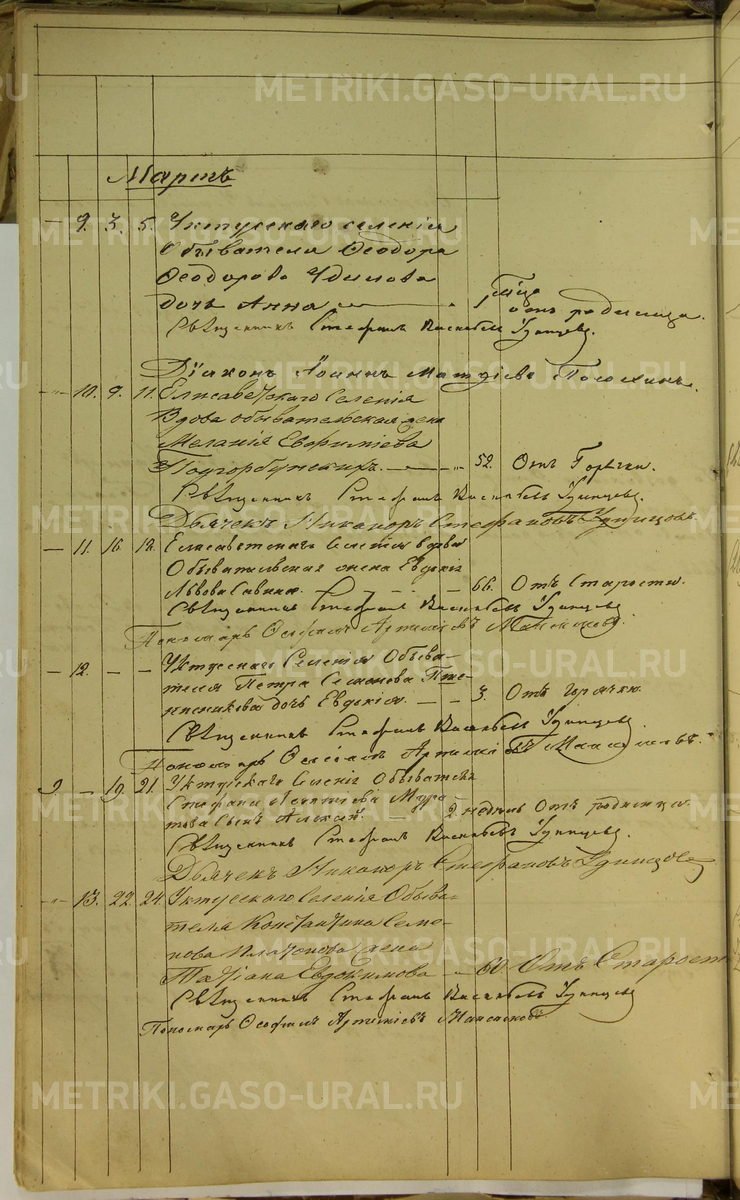 METRIKI.GASO-URAL.RU
Мартъ
— 9. 3. 5. Уктусскаго селенія
Обывателя Ѳеодора
Ѳеодорова
дочь Анна. — 1 года отъ родимца.
Священникъ Стефанъ Васильевъ Удинцевъ.
Діаконъ Іоаннъ
— 10. 9. 11. Елисаветскаго Селенія
Вдова обывательская жена
Меланія Евфиміева
Подгорбунскихъ. — 52. Отъ Горячки.
Священникъ Стефанъ Васильевъ Удинцевъ.
Дьячекъ Никаноръ Стефановъ Удинцовъ
— 11. 16. 18. Елисаветскаго Селенія вдова
Обывательская жена Евдокія
Львова Савина. — 66. Отъ Старости.
Священникъ Стефанъ Васильевъ Удинцевъ
Пономарь Ѳеофилъ Артеміевъ
— 12. — — Уктусскаго Селенія Обыва-
теля Петра Семенова
дочь Евдокія. — 3. Отъ горячки.
Священникъ Стефанъ Васильевъ Удинцевъ
Пономарь Ѳеофилъ Артеміевъ
9 — 19. 21. Уктусскаго Селенія Обывателя
Стефана Мура-
това Сынъ Алексѣй. — 2 недѣль Отъ родимца.
Священникъ Стефанъ Васильевъ Удинцевъ.
Дьячекъ Никаноръ Стефановъ Удинцовъ
— 13. 22. 24. Уктусскаго Селенія Обыва-
теля Константина Семе-
нова Платонова жена
Татіана Евдокимова — 60. Отъ Старости
Священникъ Стефанъ Васильевъ Удинцевъ
Пономарь Ѳеофилъ Артеміевъ
METRIKI.GASO-URAL.RU